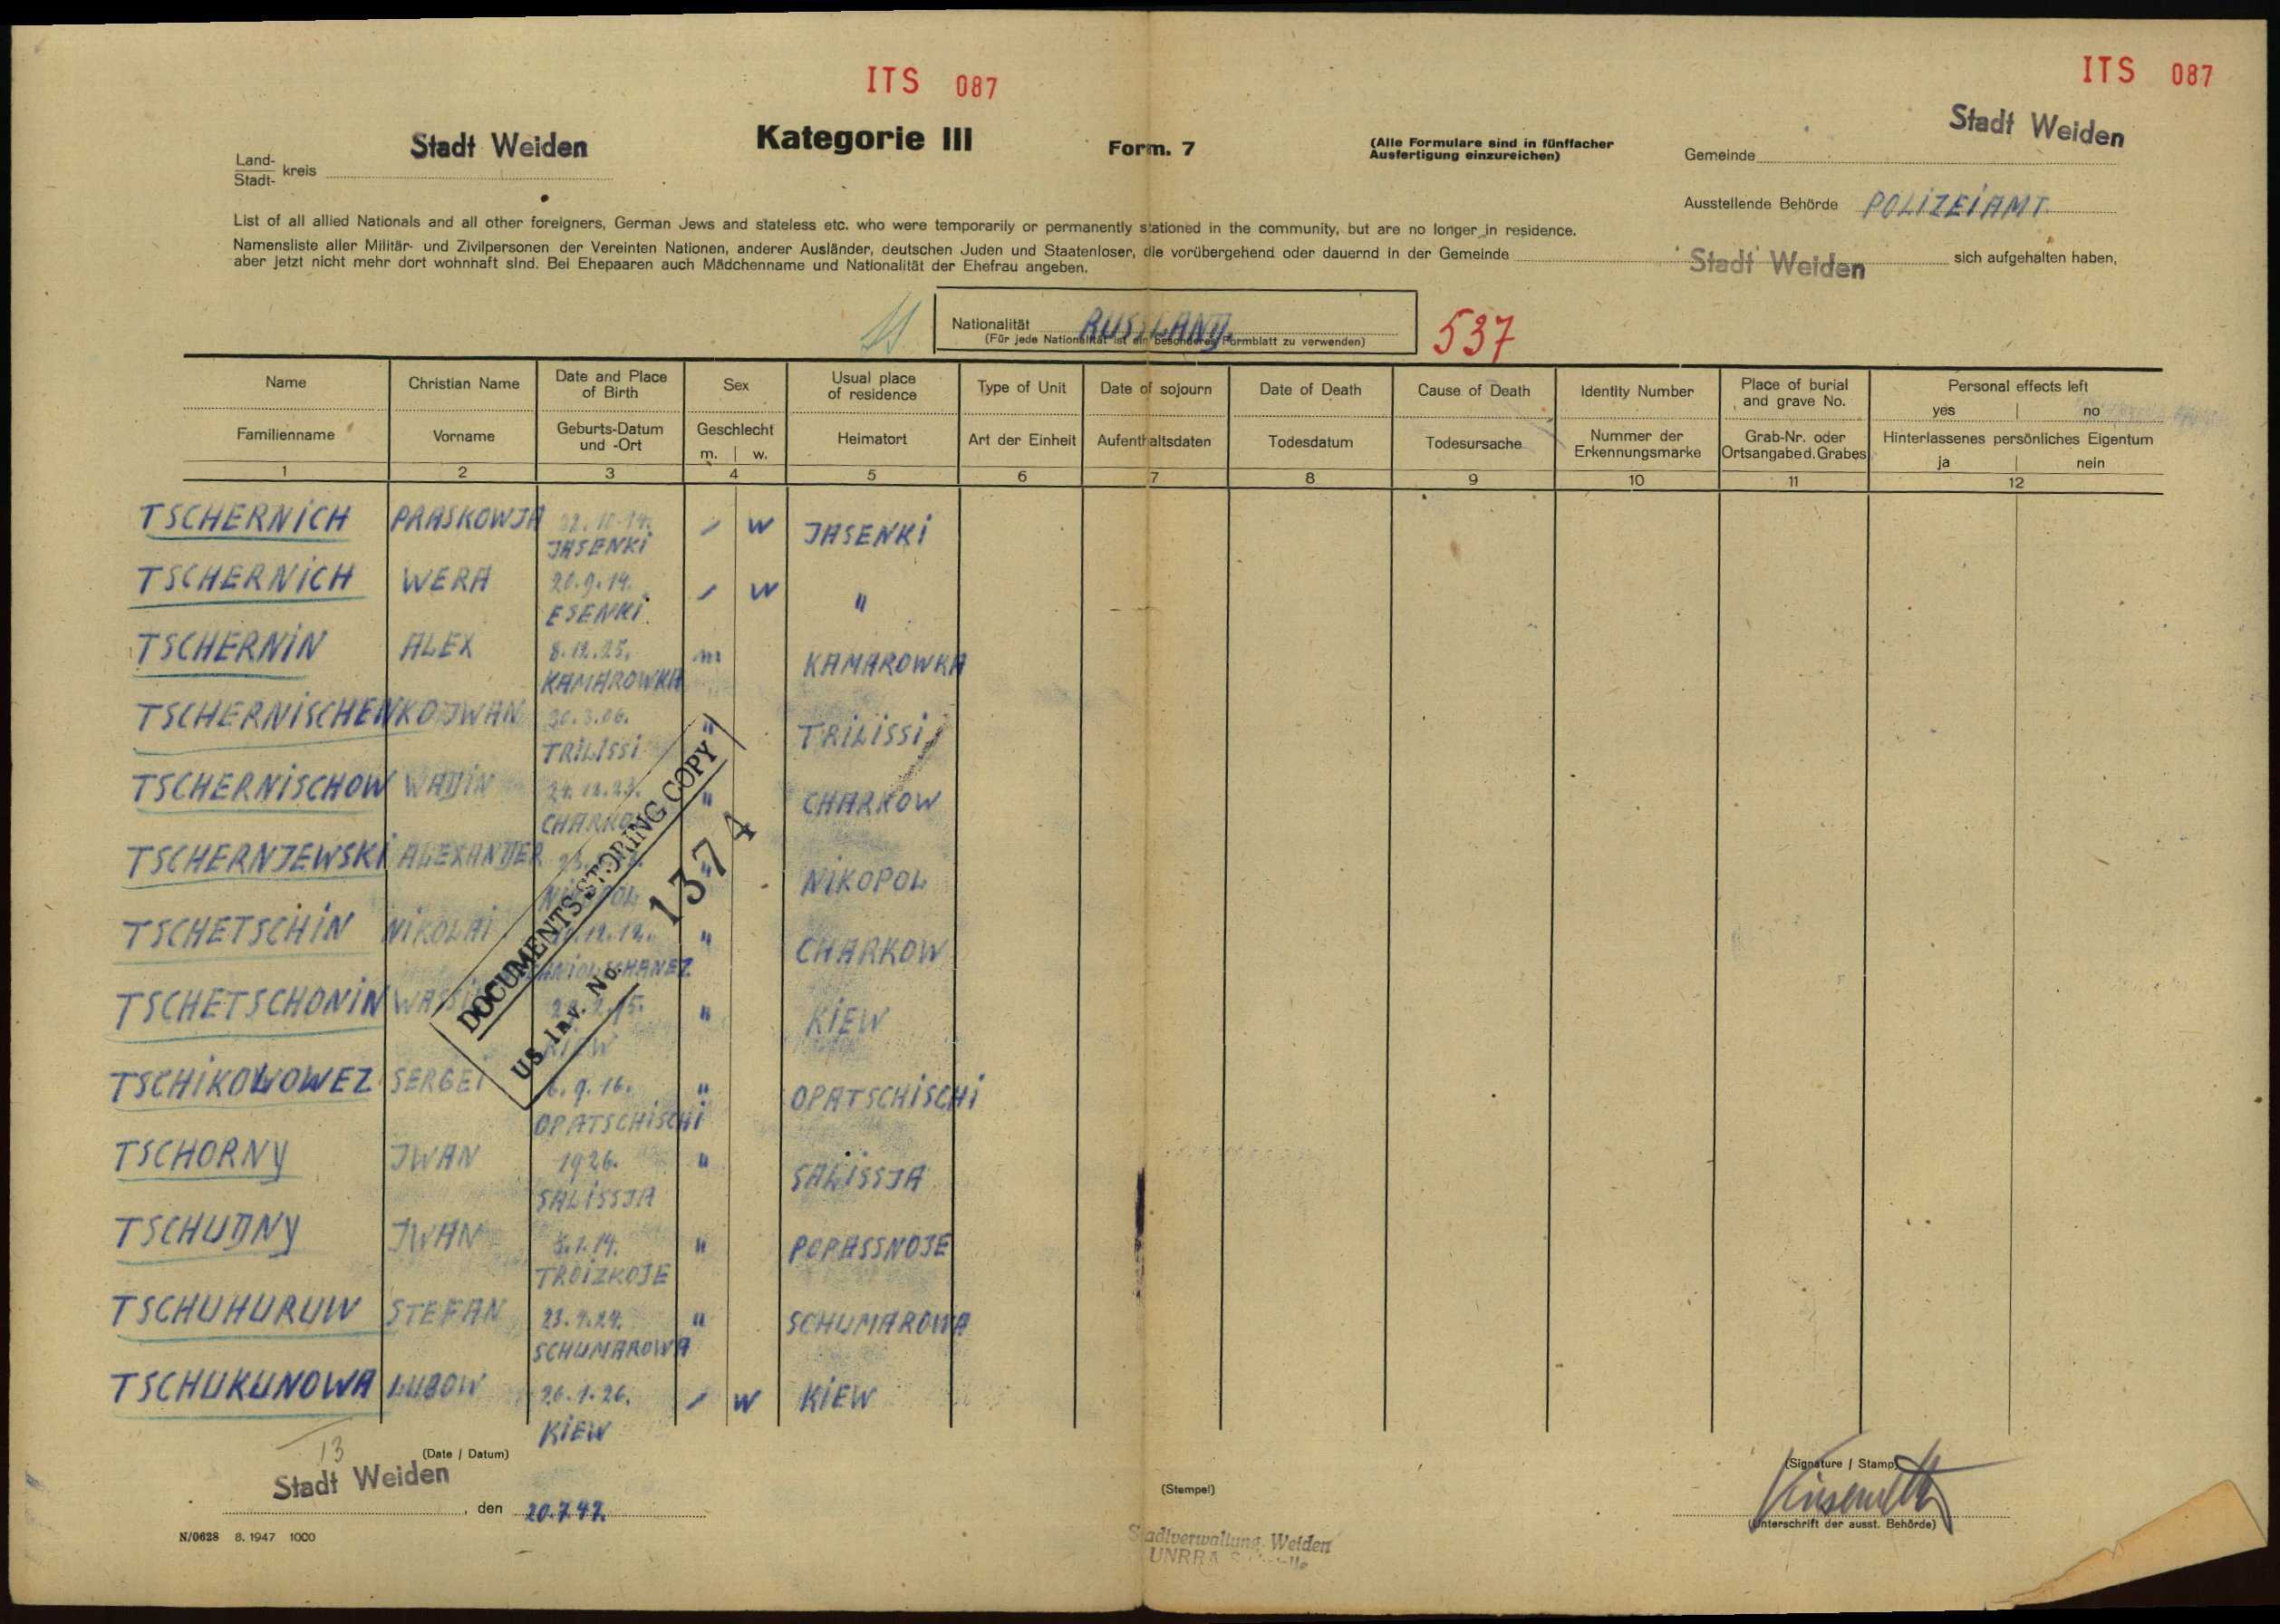 ITS 087
ITS 087
Stadt Weiden
Kategorie III
Form. 7
(Alle Formulare sind in fünffacher
Ausfertigung einzureichen)
Stadt Weiden
Land-
Stadt- kreis
Gemeinde
Ausstellende Behörde POLIZEIAMT
List of all allied Nationals and all other foreigners, German Jews and stateless etc. who were temporarily or permanently stationed in the community, but are no longer in residence.
Namensliste aller Militär- und Zivilpersonen der Vereinten Nationen, anderer Ausländer, deutschen Juden und Staatenloser, die vorübergehend oder dauernd in der Gemeinde Stadt Weiden sich aufgehalten haben,
aber jetzt nicht mehr dort wohnhaft sind. Bei Ehepaaren auch Mädchenname und Nationalität der Ehefrau angeben.
Nationalität RUSSLAND.
(Für jede Nationalität ist ein besonderes Formblatt zu verwenden)
537
Name Christian Name Date and Place of Birth Sex Usual place of residence Type of Unit Date of sojourn Date of Death Cause of Death Identity Number Place of burial and grave No. Personal effects left
yes | no
Familienname Vorname Geburts-Datum und -Ort Geschlecht Heimatort Art der Einheit Aufenthaltsdaten Todesdatum Todesursache Nummer der Erkennungsmarke Grab-Nr. oder Ortsangabe d. Grabes Hinterlassenes persönliches Eigentum
m. | w. ja | nein
1 2 3 4 5 6 7 8 9 10 11 12
TSCHERNICH PRASKOWJA W JASENKI
JASENKI
TSCHERNICH WERA 20.9.14. W "
ESENKI.
TSCHERNIN ALEX 8.12.25. m KAMAROWKA
KAMAROWKA
TSCHERNISCHENKO JWAN 30.3.06. " TRILISSI
TRILISSI
TSCHERNISCHOW WADIN 24.12.23. " CHARKOW
CHARKOW
TSCHERNJEWSKI ALEXANDER " NIKOPOL
NIKOPOL
TSCHETSCHIN NIKOLAI " CHARKOW
TSCHETSCHONIN " KIEW
KIEW
TSCHIKOWOWEZ SERGEI 6.9.16. " OPATSCHISCHI
OPATSCHISCHI
TSCHORNY JWAN 1926. " SALISSJA
SALISSJA
TSCHUDNY JWAN 5.1.14. " POPASSNOJE
TROIZKOJE
TSCHUHURUW STEFAN " SCHUMAROWA
SCHUMAROWA
TSCHUKUNOWA LUBOW 26.1.26. W KIEW
KIEW
DOCUMENTS STORING COPY
US. Inv. No. 1374
13
(Date / Datum)
Stadt Weiden, den 20.7.47.
(Stempel)
(Signature / Stamp)
(Unterschrift der ausst. Behörde)
N/0628 8. 1947 1000
Stadtverwaltung Weiden
UNRRA